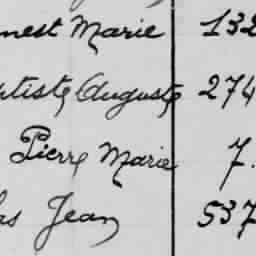 nest Marie 132
tiste Auguste 274
Pierre Marie 7.
as Jean 537